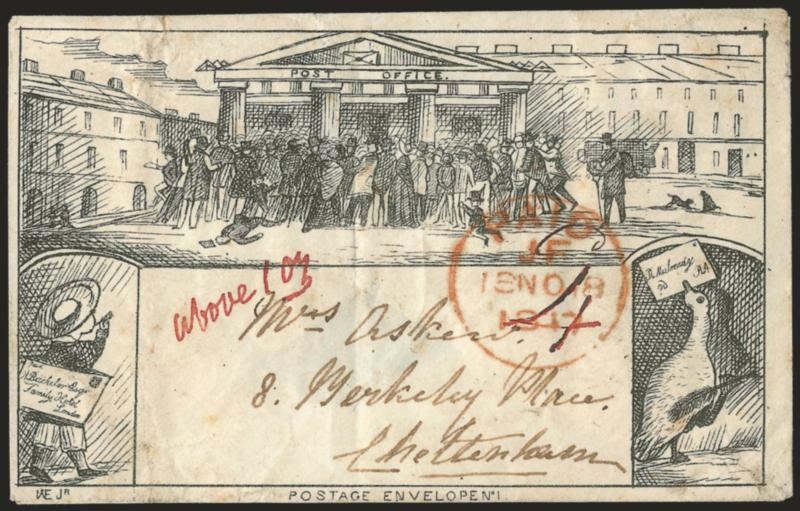 POST OFFICE.
PAID
JF
18 NO 18
1847
above 1 oz
Mrs Askew.
8. Berkeley Place.
Cheltenham
R Mulready
RA
Bachelor Esqr
Family Hotel
London
POSTAGE ENVELOPE No 1.